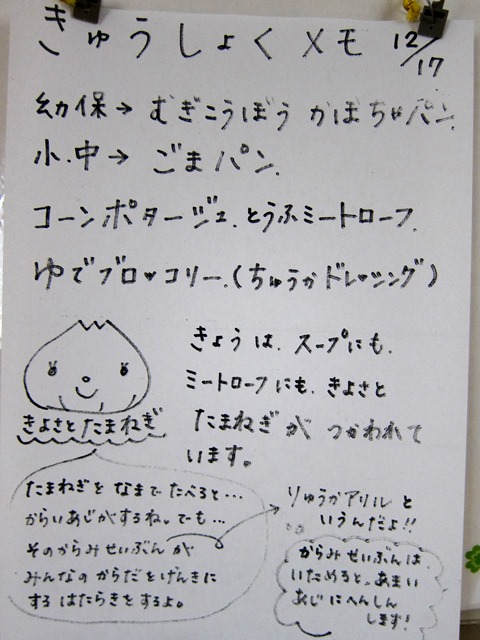 きゅうしょくメモ 12/17
幼保→ むぎこうぼう かぼちゃパン.
小.中→ ごまパン.
コーンポタージュ.とうふミートローフ.
ゆでブロッコリー.(ちゅうかドレッシング)
きょうは.スープにも.
ミートローフにも.きよさと
たまねぎが つかわれて
います。
きよさとたまねぎ
たまねぎをなまでたべると…
からいあじがするね。でも…
そのからみせいぶんが
みんなのからだをげんきに
するはたらきをするよ。
りゅうかアリルと
いうんだよ!!
からみせいぶんは、
いためると、あまい
あじにへんしん
します!